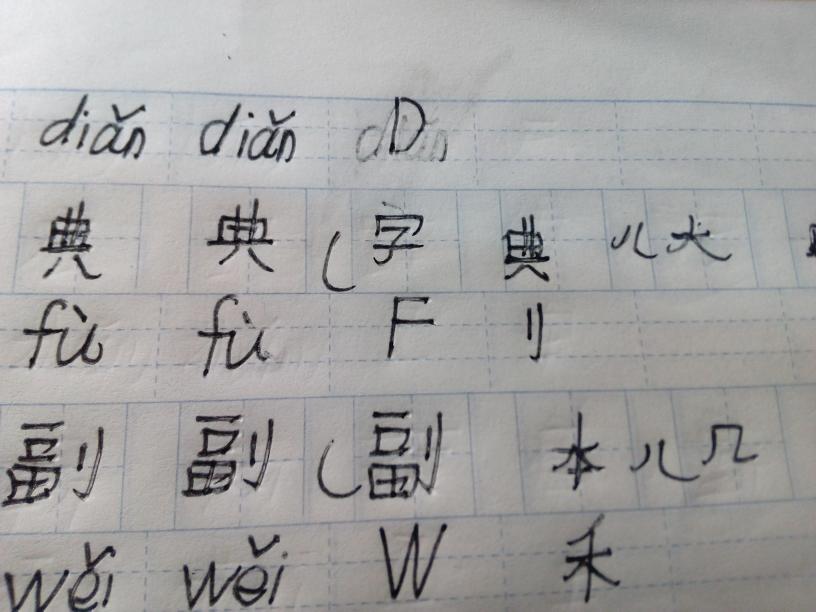 diǎn diǎn D
典 典 (字典)(大
fù fù F 刂
副 副 (副本)(几
wěi wěi W 禾